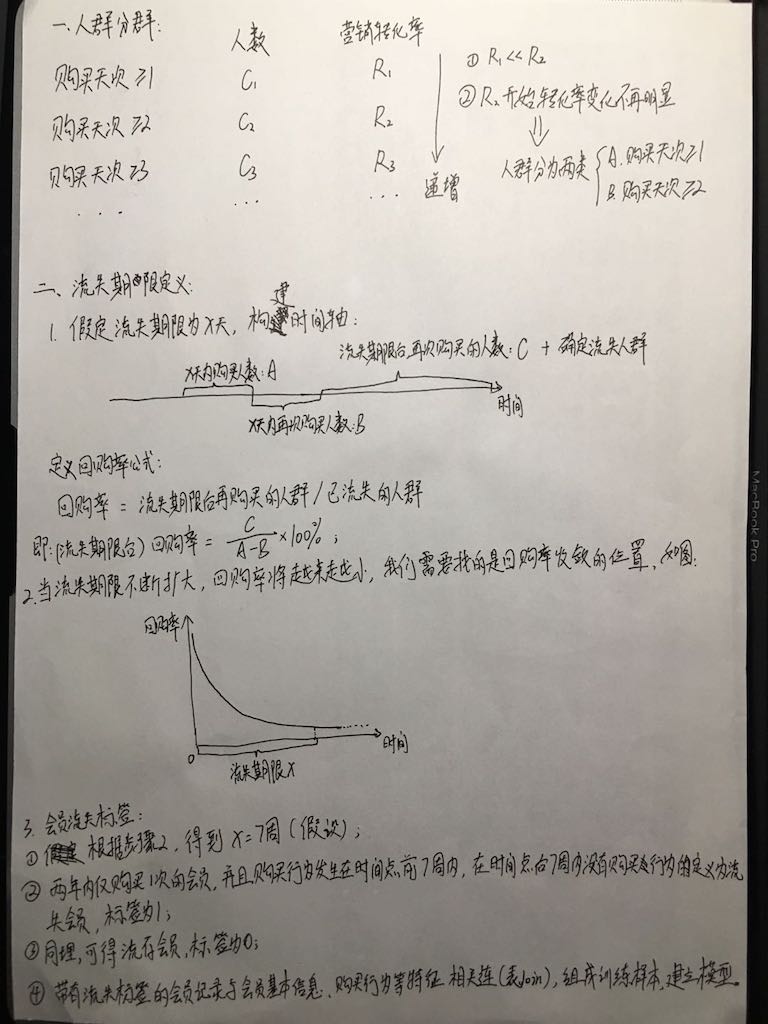 一、人群分群:
人数 营销转化率
购买天次≥1 C₁ R₁ ① R₁<<R₂
购买天次≥2 C₂ R₂ ② R₂开始转化率变化不再明显
⇓
购买天次≥3 C₃ R₃ 人群分为两类 { A.购买天次≥1
B.购买天次≥2
... ... ... 递增
二、流失期限定义:
1. 假定流失期限为X天, 构建时间轴:
流失期限后再次购买的人数: C + 确定流失人群
X天内购买人数: A
时间
X天内再次购买人数: B
定义回购率公式:
回购率 = 流失期限后再购买的人群 / 已流失的人群
即: (流失期限后) 回购率 = C/(A-B) ×100%;
2. 当流失期限不断扩大, 回购率将越来越小, 我们需要找的是回购率收敛的位置, 如图:
回购率
0 时间
流失期限X
3. 会员流失标签:
① 根据步骤2, 得到 X=7周 (假设);
② 两年内仅购买1次的会员, 并且购买行为发生在时间点前7周内, 在时间点后7周内没有购买行为的定义为流
失会员, 标签为1;
③ 同理, 可得流存会员, 标签为0;
④ 带有流失标签的会员记录与会员基本信息、购买行为等特征 相关连(表Join), 组成训练样本, 建立模型。
MacBook Pro